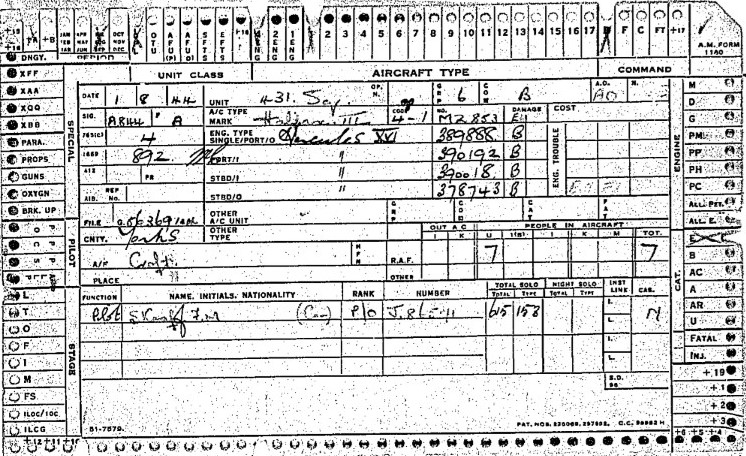 +15 +A +B JAN APR JUL OCT FEB MAY AUG NOV MAR JUN SEP DEC OTU AFU (P) AFU (O) SFTS EFTS +16 4 ENG 2 ENG 1 ENG 2 3 4 5 6 7 8 9 10 11 12 13 14 15 16 17 B F C FT +17
+18
A.M. FORM 1180
DNGY. PERIOD UNIT CLASS AIRCRAFT TYPE COMMAND
XFF
XAA
XQQ
XBB
PARA.
PROPS
GUNS
OXYGN
BRK. UP
SPECIAL
DATE 1 8 44 UNIT 431. Sqn. OP. N. GRP 6 COW B A.O. AO N.
SIG. A844 F A A/C TYPE MARK Halifax III CODE 4-1 NO. MZ 853 DAMAGE E COST
765(C) 4 ENG. TYPE SINGLE/PORT/O Hercules XVI 389888 B
1669 892 PORT/I " 390192 B
412 PR STBD/I " 390018 B
AIB. REF No. STBD/O " 378743 B
ENG. TROUBLE
FILE OTHER A/C UNIT GRP COD CAT FAT
CNTY. Yorks OTHER TYPE OUT A C PEOPLE IN AIRCRAFT
I K U I(S) I K M TOT.
A/F Croft HFN R.A.F. 7 7
PLACE OTHER
FUNCTION NAME. INITIALS. NATIONALITY RANK NUMBER TOTAL SOLO NIGHT SOLO INST LINK CAS.
TOTAL TYPE TOTAL TYPE
Pilot F.M (Can) P/O 615 158 L. N
L.
L.
L.
S.D. 96
PILOT
STAGE
L
T
O
F
I
M
FS
ILOC/IOC
ILCG
+12 +11 +10
M
D
G
PM
PP
PH
PC
ALL. PRT.
ALL. E.
ENGINE
CAT.
B
AC
A
AR
U
FATAL
INJ.
+.19
+.1
+.2
+.3
+6 +5 +4
51-7570. PAT. NOS.